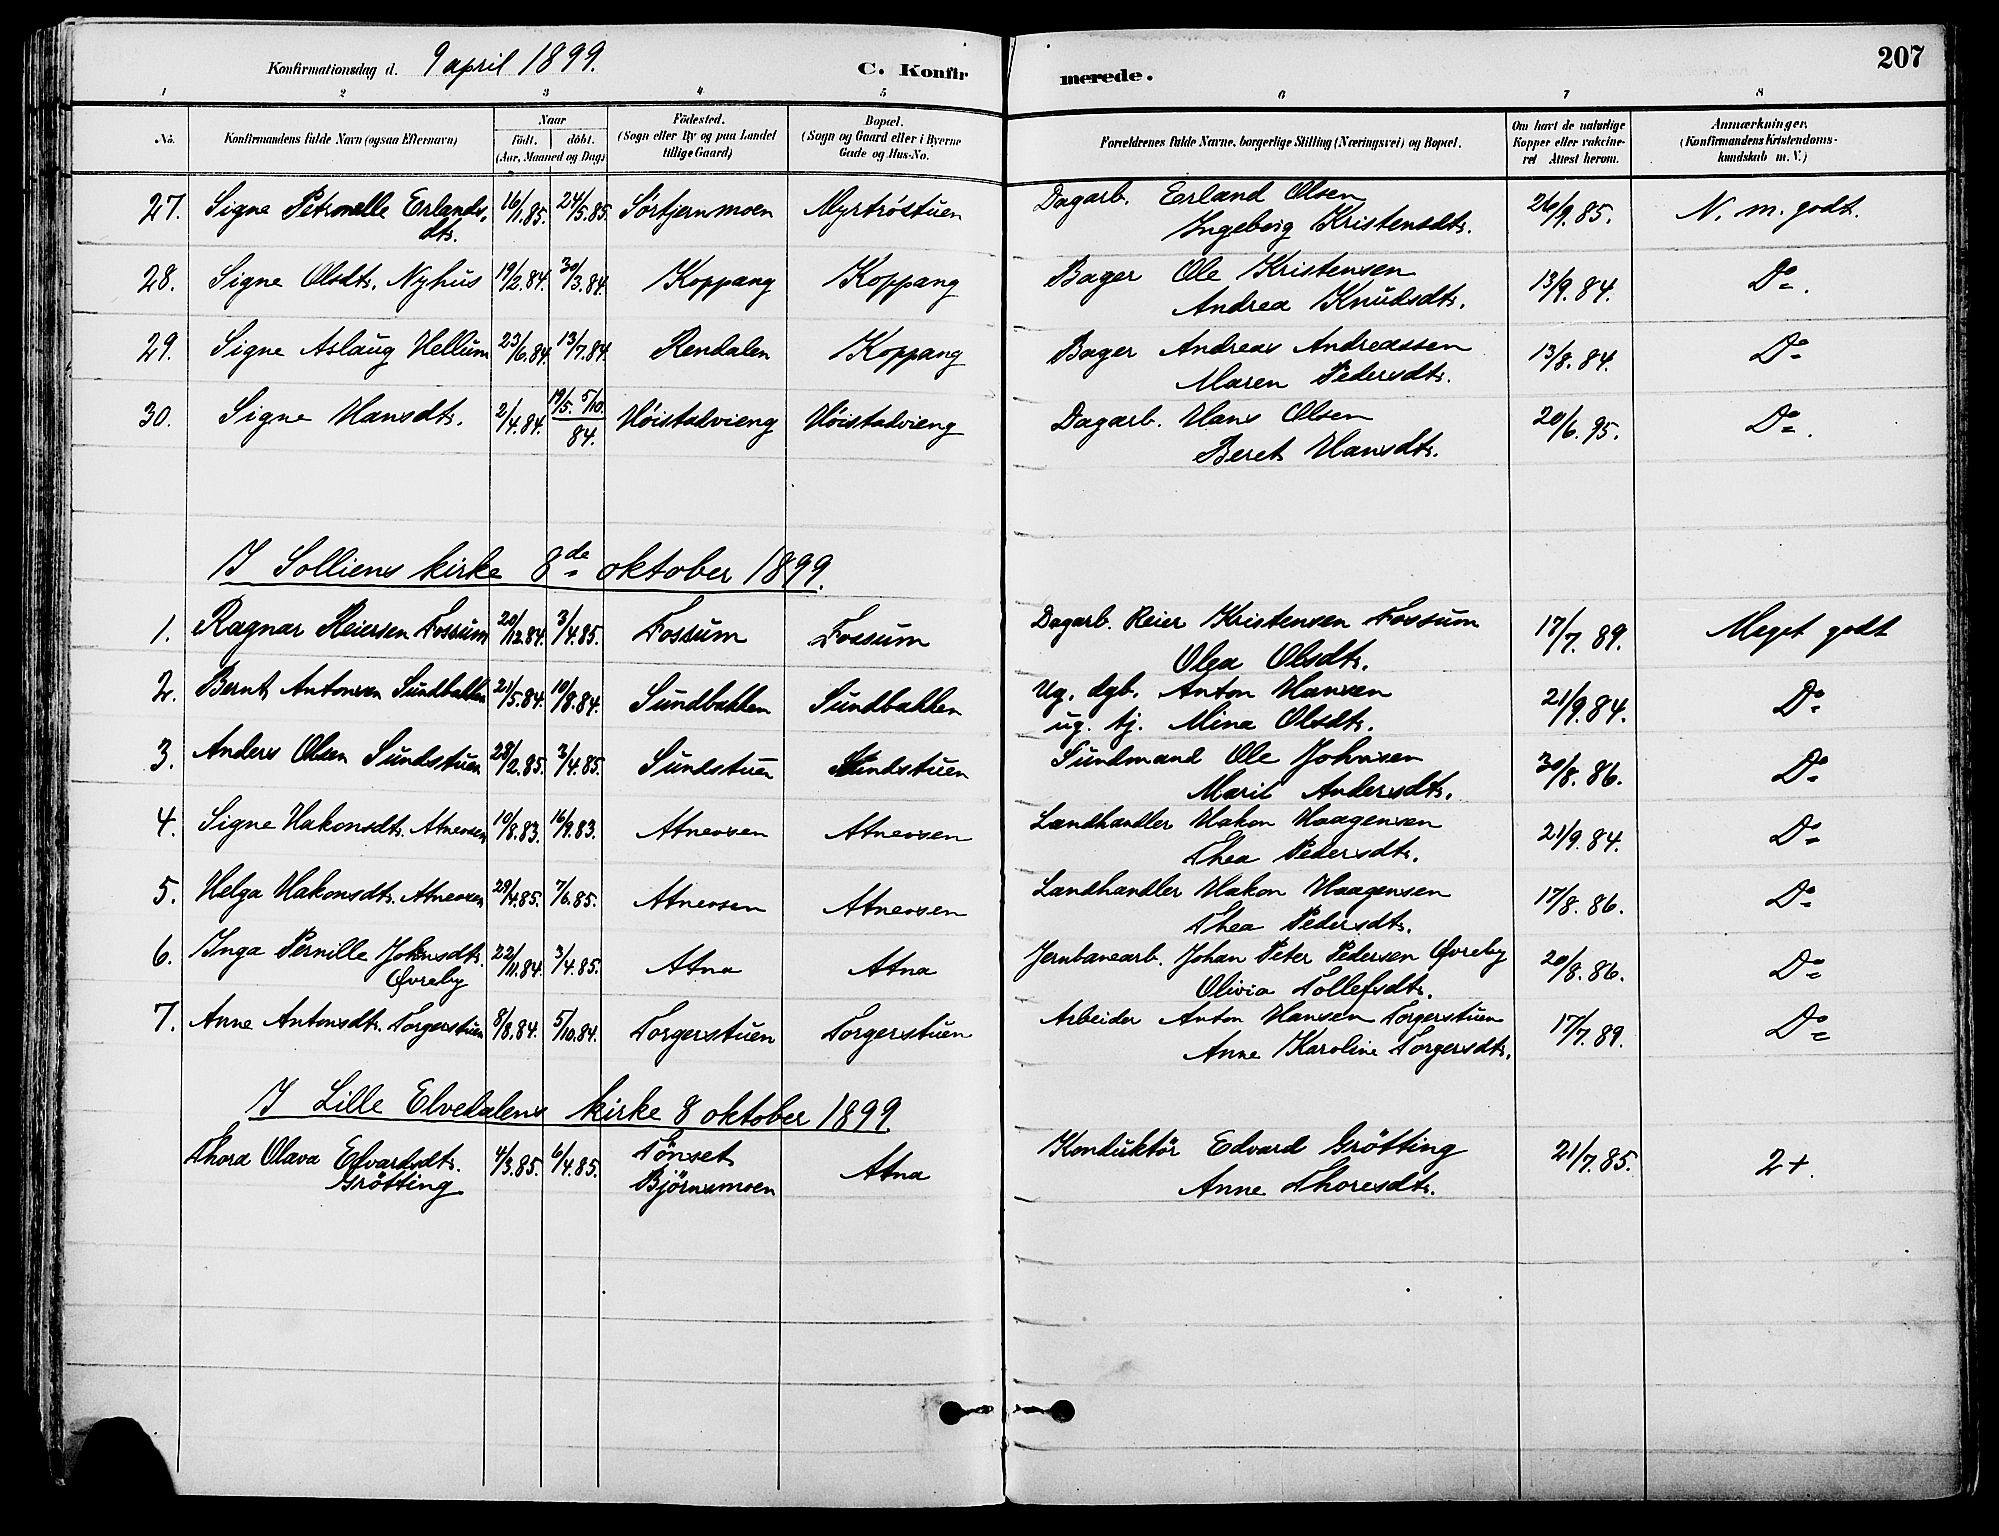 Konfirmationsdag d. 9 april 1899. C. Konfirmerede. 207
1 2 3 4 5 6 7 8
No. Konfirmandens fulde Navn (ogsaa Efternavn) Naar født. døbt. (Aar, Maaned og Dag) Fødested. (Sogn eller By og paa Landet tillige Gaard) Bopæl. (Sogn og Gaard eller i Byerne Gade og Hus-No. Forældrenes fulde Navne, borgerlige Stilling (Næringsvei) og Bopæl. Om havt de naturlige Kopper eller vakcineret Attest herom. Anmærkninger. (Konfirmandens Kristendomskundskab m. V.)
27. Signe Petronelle Erlandsdtr. 16/11.85. 24/5.85. Sörtjernmoen Myrtröstuen Dagarb. Erland Olsen Ingeborg Kristensdtr. 26/9.85. N. m. godt.
28. Signe Olsdtr. Nyhus 19/2.84. 30/3.84. Koppang Koppang Bager Ole Kristensen Andrea Knudsdtr. 13/9.84. Do.
29. Signe Aslaug Hellum 23/6.84. 13/7.84. Rendalen Koppang Bager Andreas Andreassen Maren Pedersdtr. 13/8.84. Do
30. Signe Hansdtr. 2/4.84. 19/5. 5/10. 84. Höistadvieng Höistadvieng Dagarb. Hans Olsen Beret Hansdtr. 20/6.95. Do.
I Solliens kirke 8de oktober 1899.
1. Ragnar Reiersen Fossum 20/12.84. 3/4.85. Fossum Fossum Dagarb. Reier Kristensen Fossum Olea Olsdtr. 17/7.89. Meget godt
2. Bernt Antonsen Sundbakken 21/5.84. 10/8.84. Sundbakken Sundbakken Ug. dgb. Anton Hansen ug. tj. Mina Olsdtr. 21/9.84. Do
3. Anders Olsen Sundstuen 28/2.85. 3/4.85. Sundstuen Sundstuen Sundmand Ole Johnsen Marit Andersdtr. 30/8.86. Do
4. Signe Hakonsdtr. Atneosen 10/8.83. 16/9.83. Atneosen Atneosen Landhandler Hakon Haagensen Thea Pedersdtr. 21/9.84. Do
5. Helga Hakonsdtr. Atneosen 29/4.85. 7/6.85. Atneosen Atneosen Landhandler Hakon Haagensen Thea Pedersdtr. 17/8.86. Do
6. Inga Pernille Johansdtr. Øvreby 22/11.84. 3/4.85. Atna Atna Jernbanearb. Johan Peter Pedersen Øvreby Olivia Tollefsdtr. 20/8.86. Do
7. Anne Antonsdtr. Torgerstuen 8/8.84. 5/10.84. Torgerstuen Torgerstuen Arbeider Anton Hansen Torgerstuen Anne Karoline Torgersdtr. 17/7.89. Do
I Lille Elvedalens kirke 8 oktober 1899.
Thora Olava Edvardsdtr. Grötting 4/3.85. 6/4.85. Tönset Björnsmoen Atna Konduktör Edvard Grötting Anne Thoresdtr. 21/7.85. 2+.